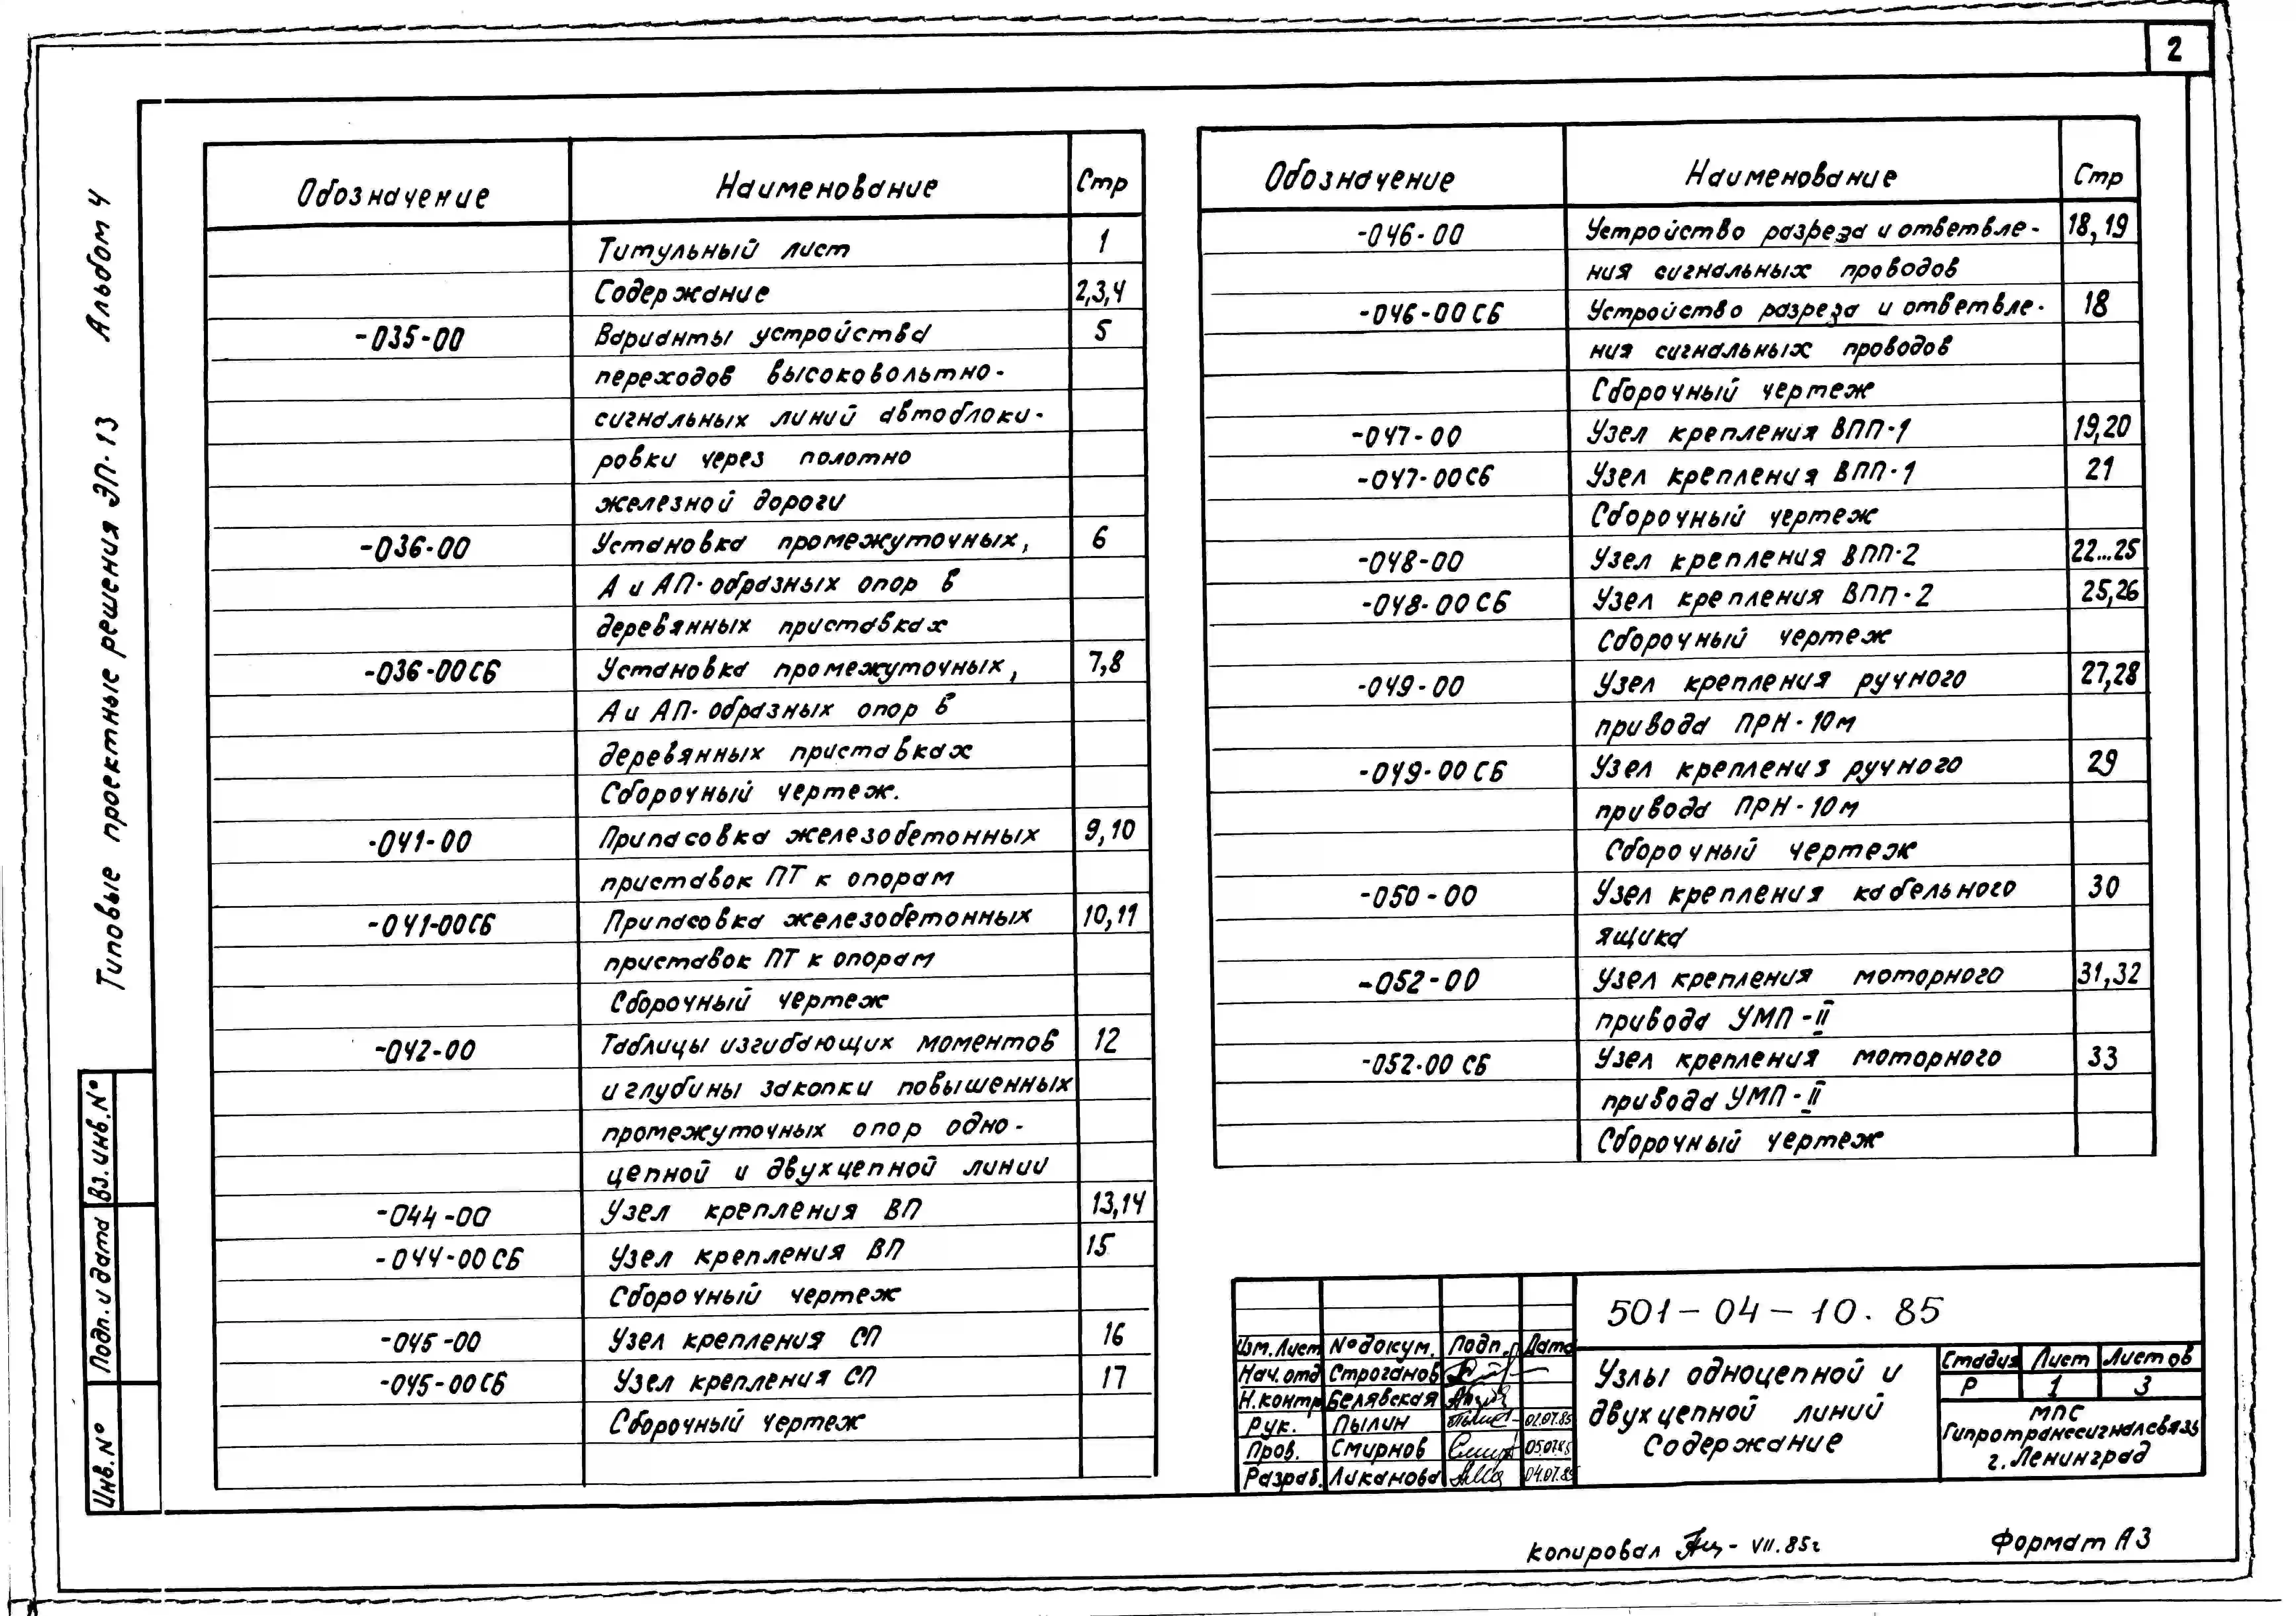 2
Типовые проектные решения ЭП-13 Альбом 4
Обозначение Наименование Стр
Титульный лист 1
Содержание 2,3,4
-035-00 Варианты устройства 5
переходов высоковольтно-
сигнальных линий автоблоки-
ровки через полотно
железной дороги
-036-00 Установка промежуточных, 6
А и АП-образных опор в
деревянных приставках
-036-00СБ Установка промежуточных, 7,8
А и АП-образных опор в
деревянных приставках
Сборочный чертеж.
-041-00 Припасовка железобетонных 9,10
приставок ПТ к опорам
-041-00СБ Припасовка железобетонных 10,11
приставок ПТ к опорам
Сборочный чертеж
-042-00 Таблицы изгибающих моментов 12
и глубины закопки повышенных
промежуточных опор одно-
цепной и двухцепной линии
-044-00 Узел крепления ВП 13,14
-044-00СБ Узел крепления ВП 15
Сборочный чертеж
-045-00 Узел крепления СП 16
-045-00СБ Узел крепления СП 17
Сборочный чертеж
Обозначение Наименование Стр
-046-00 Устройство разреза и ответвле- 18,19
ния сигнальных проводов
-046-00СБ Устройство разреза и ответвле- 18
ния сигнальных проводов
Сборочный чертеж
-047-00 Узел крепления ВПП-1 19,20
-047-00СБ Узел крепления ВПП-1 21
Сборочный чертеж
-048-00 Узел крепления ВПП-2 22...25
-048-00СБ Узел крепления ВПП-2 25,26
Сборочный чертеж
-049-00 Узел крепления ручного 27,28
привода ПРН-10м
-049-00СБ Узел крепления ручного 29
привода ПРН-10м
Сборочный чертеж
-050-00 Узел крепления кабельного 30
ящика
-052-00 Узел крепления моторного 31,32
привода УМП-II
-052-00 СБ Узел крепления моторного 33
привода УМП-II
Сборочный чертеж
Вз.инв.№
Подп. и дата
Инв.№
501-04-10.85
Изм. Лист № докум. Подп. Дата
Нач.отд Строганов
Н.контр Белявская
Рук. Пылин 02.07.85
Пров. Смирнов 05.07.85
Разраб. Ликанова 04.07.85
Узлы одноцепной и
двухцепной линий
Содержание
Стадия Лист Листов
Р 1 3
МПС
Гипротранссигналсвязь
г. Ленинград
Копировал VII.85г
Формат А3